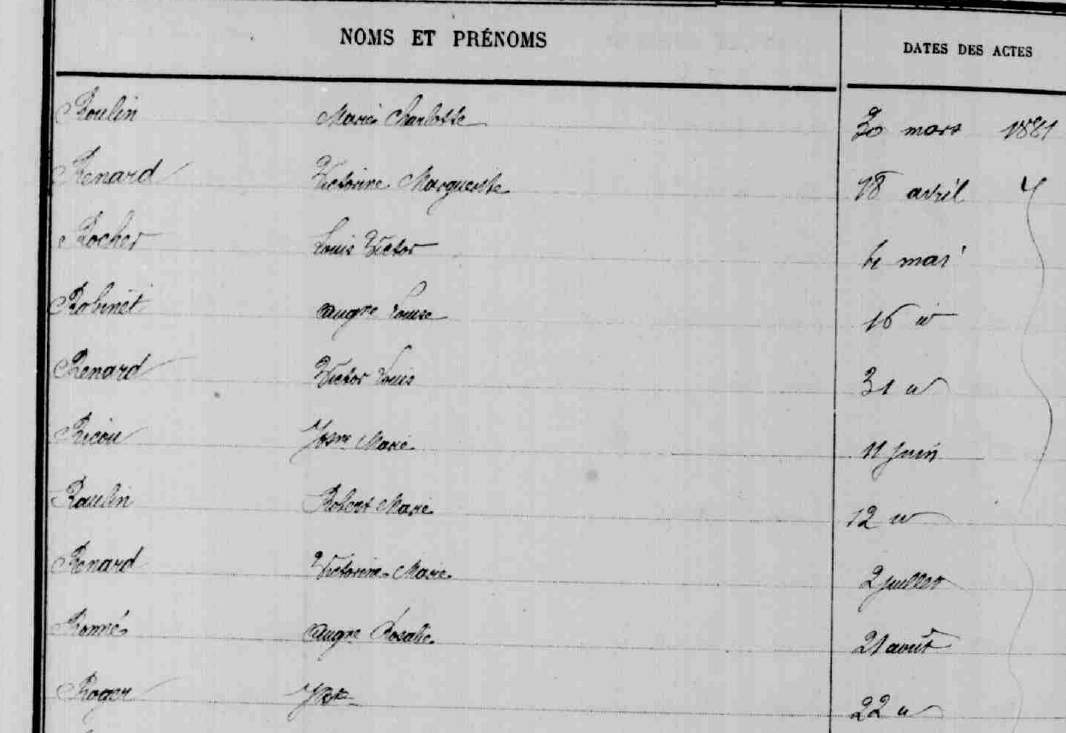 NOMS ET PRÉNOMS DATES DES ACTES
Roulin Marie Charlotte 30 mars 1881
Renard Victorine Marguerite 18 avril
Rocher Louis Victor 6 mai
Robinet Augne Louise 16 id
Renard Victor Louis 31 id
Ricou Marie 11 juin
Raulin Robert Marie 12 id
Renard Victorine Marie 2 juillet
Ronné Augne Rosalie 21 août
Roger 22 id